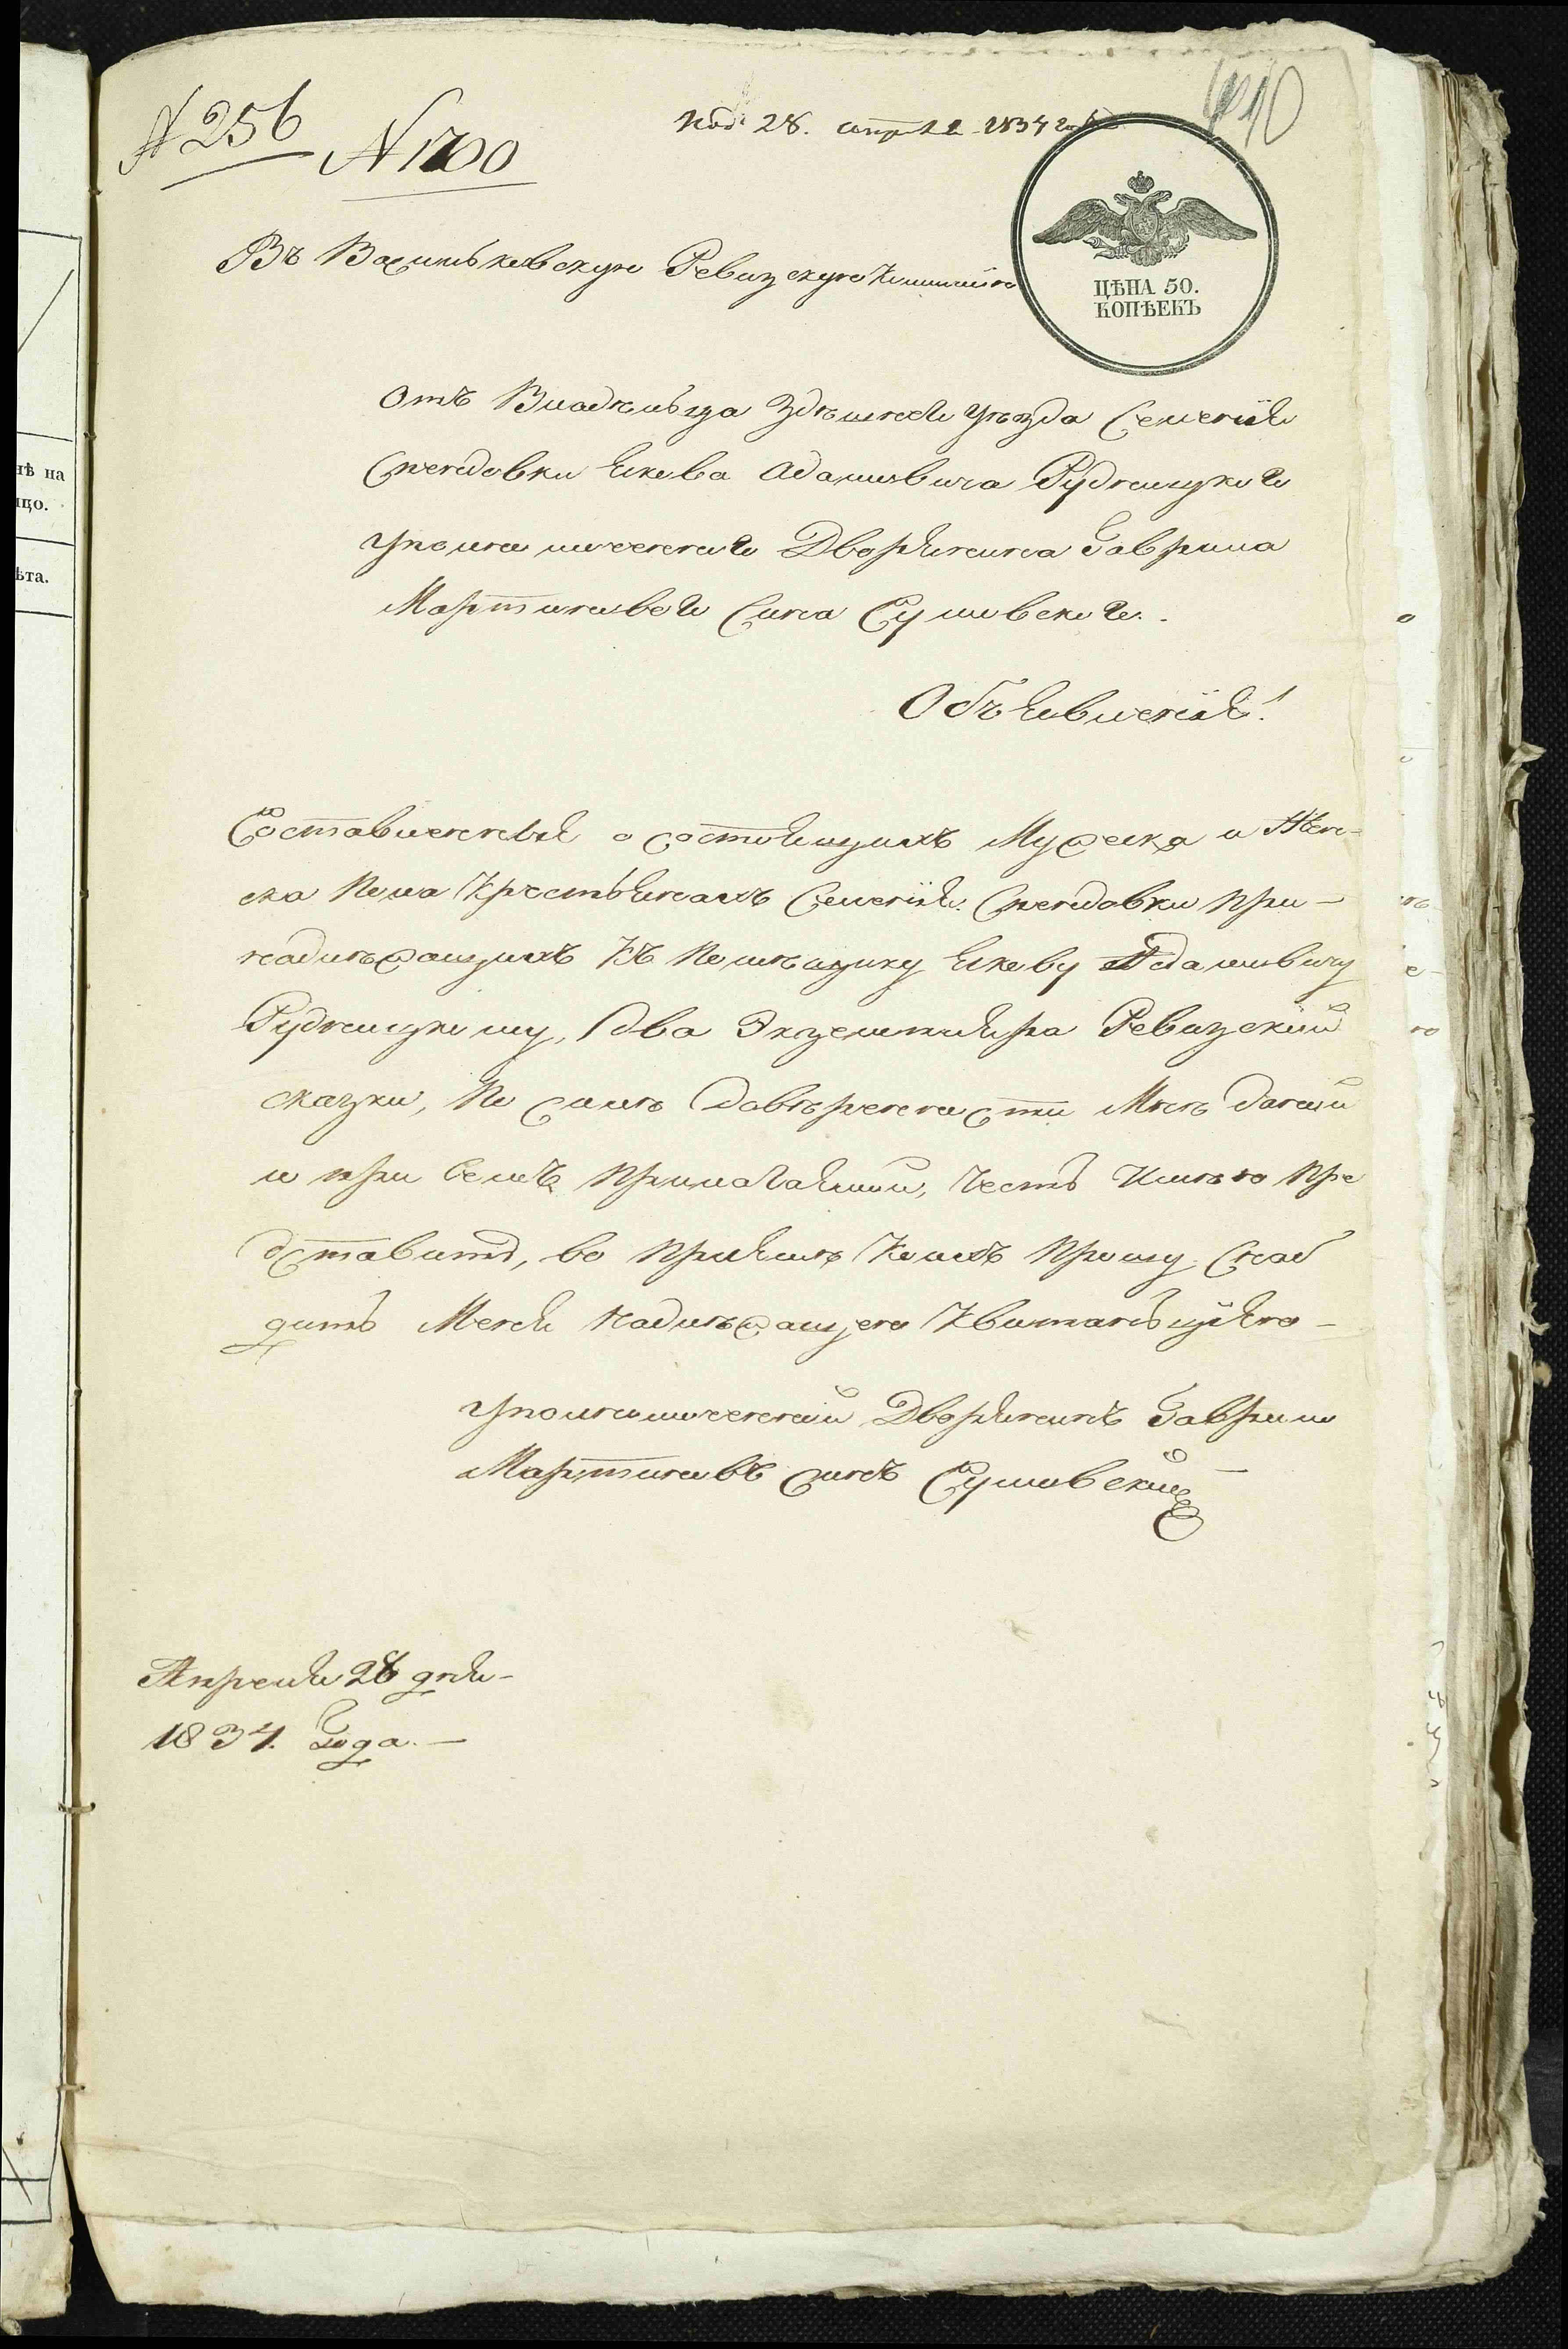 № 256
№ 1700
Под: 28. апреля 1834 года
410
ЦѢНА 50.
КОПѢЕКЪ
Въ Васильковскую Ревизскую Коммисію
Отъ Владѣльца Здѣшнего Уѣзда Селенія
Спендовки Якова Адамовича Рудницкого
уполномоченного Дворянина Гаврила
Мартинового Сина Сумовского.
Объявленія!
Составленныя о состоящихъ Мужеска и Жен-
ска Пола Крестьянахъ Селенія Спендовки при-
надлѣжащихъ Къ Помѣщику Якову Адамовичу
Рудницкому, два Экземпляра Ревизскій
сказки, По силѣ довѣренности Мнѣ даной
и при семъ прилагаямой, Честь Имѣю Пре
дставить, во пріямѣ Коихъ Прошу Снаб
дить Меня надлѣжащею Квитанціяю -
уполномоченной Дворянинъ Гаврило
Мартиновъ синъ Сумовский
Апреля 28 дня -
1834. Года. -
нѣ на
цо.
ѣта.